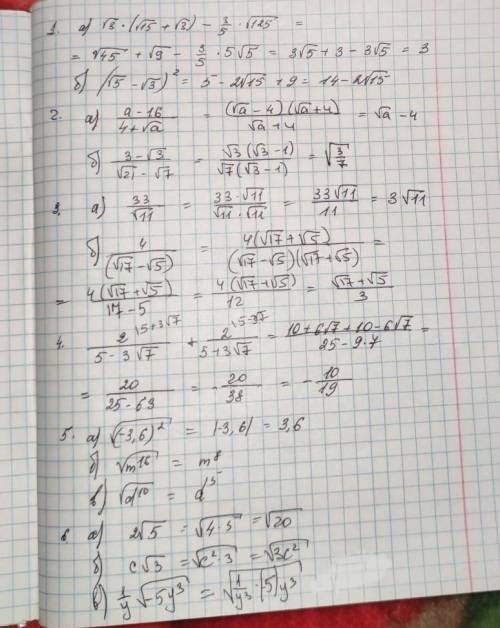 1. а) √3 · (√15 + √3) − 3/5 · √125 =
= √45 + √9 − 3/5 · 5√5 = 3√5 + 3 − 3√5 = 3
б) (√5 − √3)² = 5 − 2√15 + 9 = 14 − 2√15
2. а) (a − 16)/(4 + √a) = ((√a − 4)(√a + 4))/(√a + 4) = √a − 4
б) (3 − √3)/(√21 − √7) = (√3(√3 − 1))/(√7(√3 − 1)) = √(3/7)
3. а) 33/√11 = (33 · √11)/(√11 · √11) = 33√11/11 = 3√11
б) 4/(√17 − √5) = 4(√17 + √5)/((√17 − √5)(√17 + √5)) =
= 4(√17 + √5)/(17 − 5) = 4(√17 + √5)/12 = (√17 + √5)/3
4. 2\5+3√7/(5 − 3√7) + 2\5−3√7/(5 + 3√7) = (10 + 6√7 + 10 − 6√7)/(25 − 9·7) =
= 20/(25 − 63) = − 20/38 = − 10/19
5. а) √(−3,6)² = |−3,6| = 3,6
б) √m¹⁶ = m⁸
в) √d¹⁰ = d⁵
6. а) 2√5 = √4·5 = √20
б) c√3 = √c²·3 = √3c²